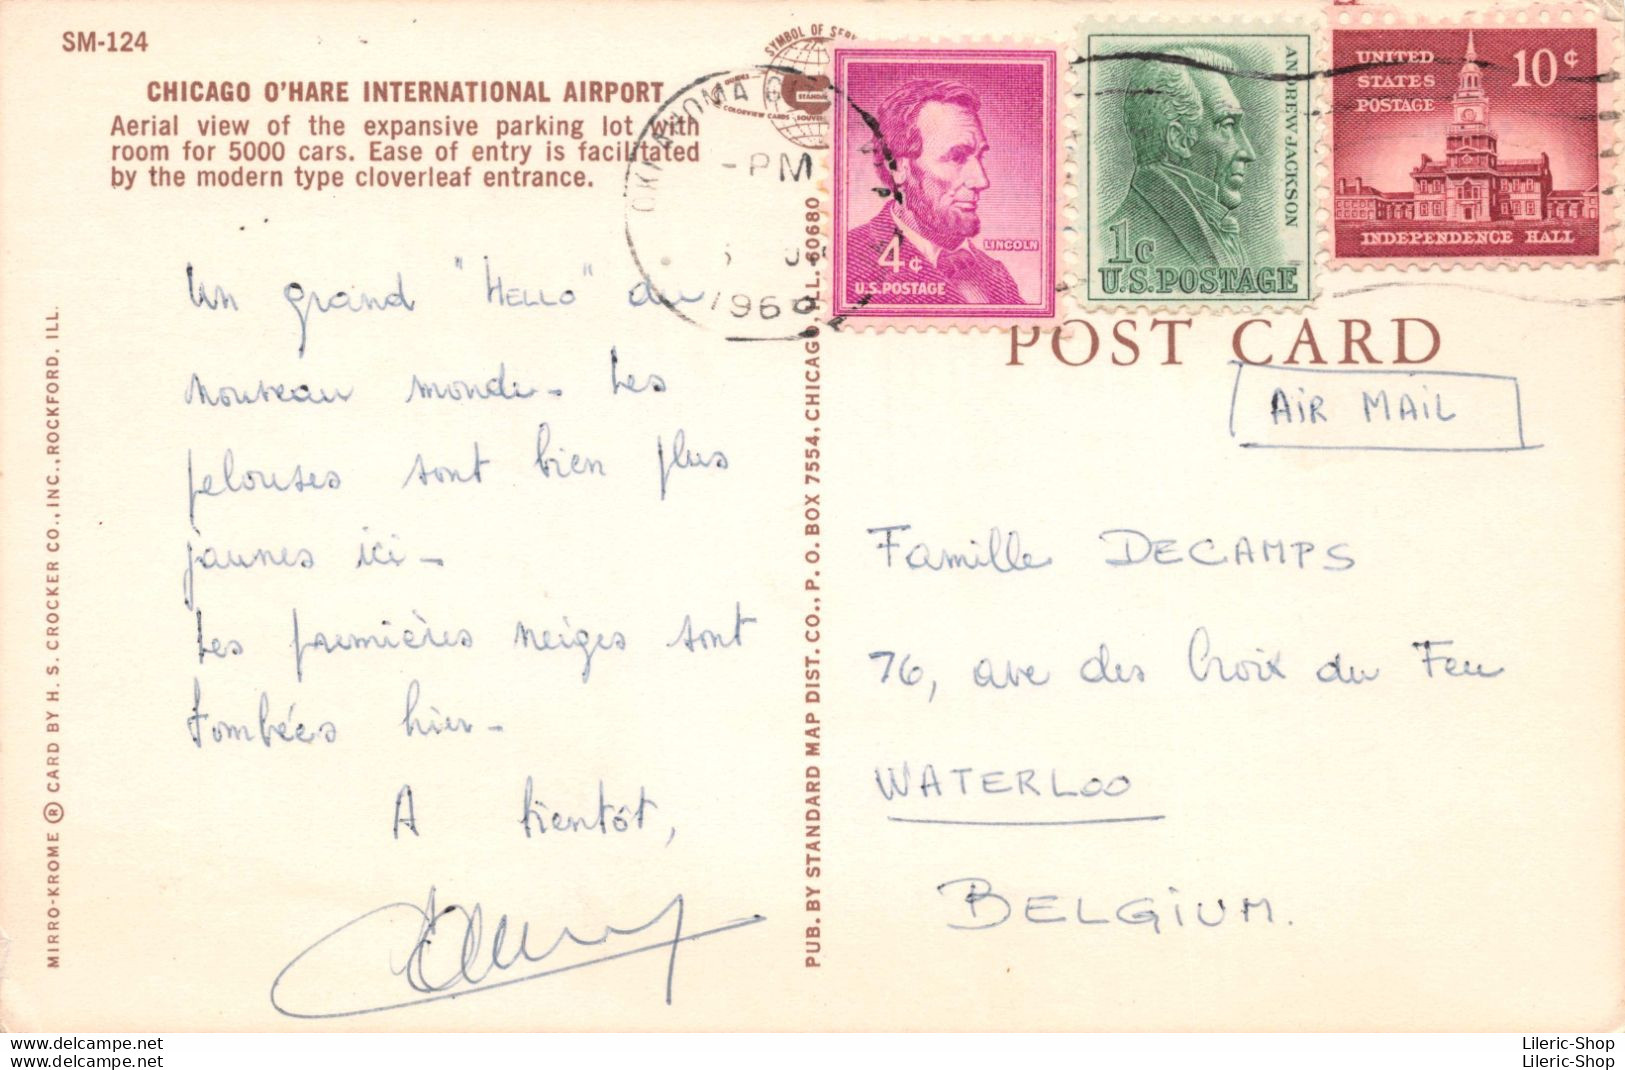 SM-124
CHICAGO O'HARE INTERNATIONAL AIRPORT
Aerial view of the expansive parking lot with
room for 5000 cars. Ease of entry is facilitated
by the modern type cloverleaf entrance.
Un grand "HELLO" du
nouveau monde - Les
pelouses sont bien plus
jaunes ici -
Les premières neiges sont
tombées hier -
A bientôt,
MIRRO-KROME ® CARD BY H. S. CROCKER CO., INC., ROCKFORD, ILL.
PUB. BY STANDARD MAP DIST. CO., P. O. BOX 7554, CHICAGO, ILL. 60680
SYMBOL OF
OKLAHOMA
PM
196
LINCOLN
4¢
U.S. POSTAGE
ANDREW JACKSON
1c
U.S. POSTAGE
UNITED
STATES
POSTAGE
10¢
INDEPENDENCE HALL
POST CARD
AIR MAIL
Famille DECAMPS
76, ave des Croix du Feu
WATERLOO
BELGIUM.
Lileric-Shop
Lileric-Shop
https://www.delcampe.net
https://www.delcampe.net